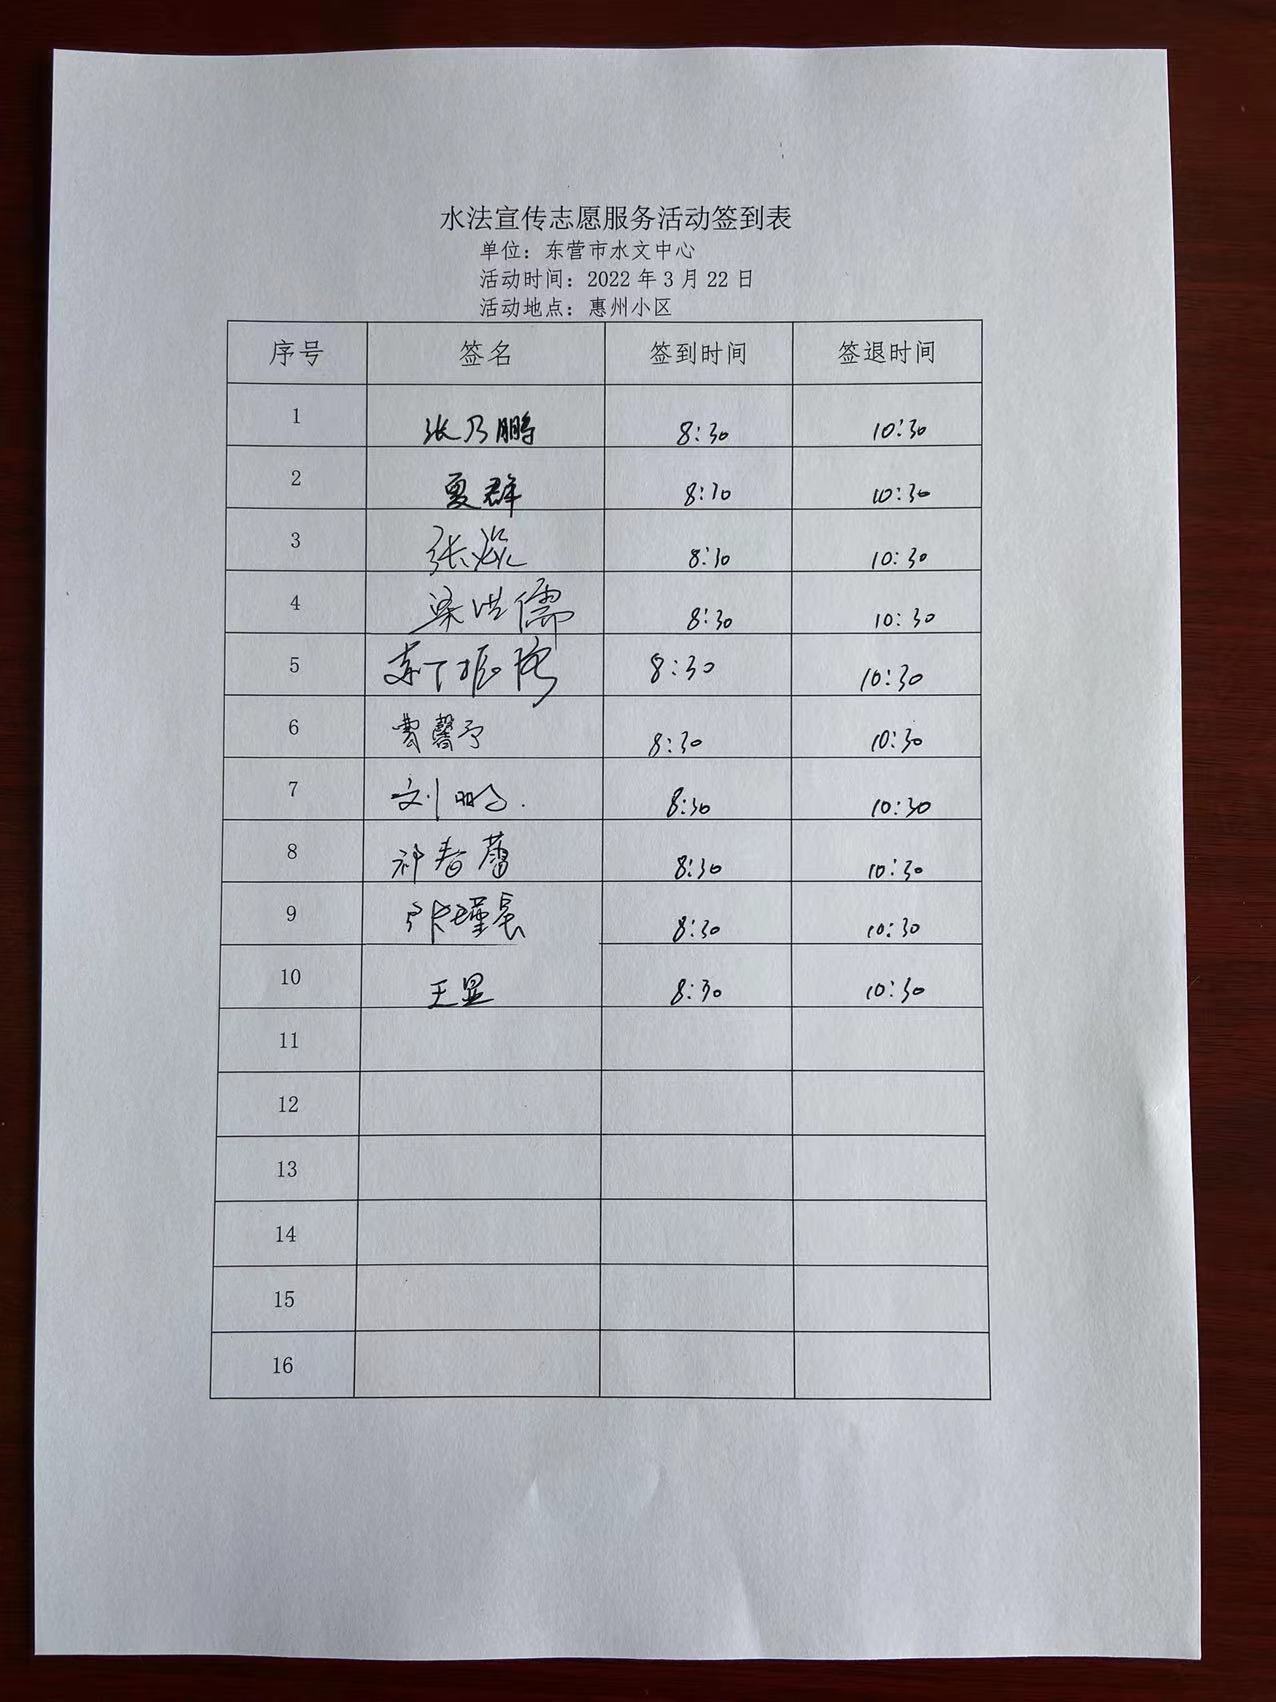 水法宣传志愿服务活动签到表
单位：东营市水文中心
活动时间：2022年3月22日
活动地点：惠州小区
序号 签名 签到时间 签退时间
1 张乃鹏 8:30 10:30
2 夏群 8:30 10:30
3 张 8:30 10:30
4 梁洪儒 8:30 10:30
5 8:30 10:30
6 曹馨予 8:30 10:30
7 刘鹏 8:30 10:30
8 祁春蕾 8:30 10:30
9 8:30 10:30
10 王显 8:30 10:30
11
12
13
14
15
16